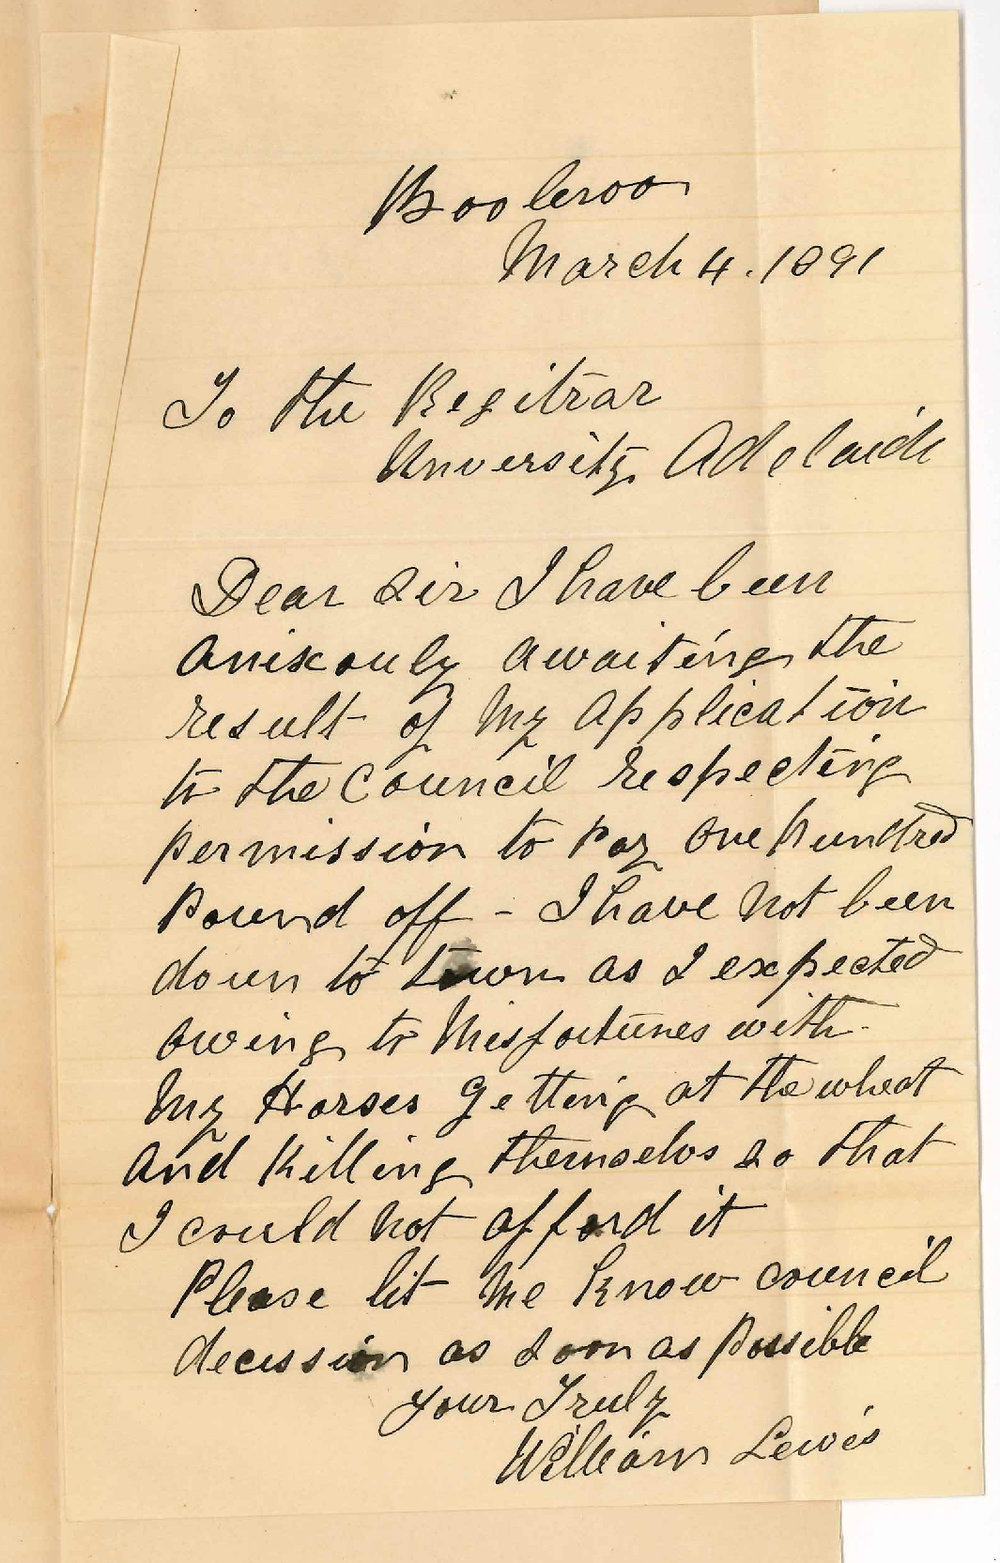 Booleroo
March 4. 1891
To the Regitrar
Unversity Adelaide
Dear Sir I have been
Anixouly awaiting the
result of My Application
to the Council respecting
permission to Pay One hundred
Pound off - I have Not been
down to town as I expected
Owing to Misfortunes with
My Horses Getting at the wheat
And Killing themselvs so that
I could Not afford it
Please lit Me Know Council
decission as soon as Possible
Your Truly
William Lewis